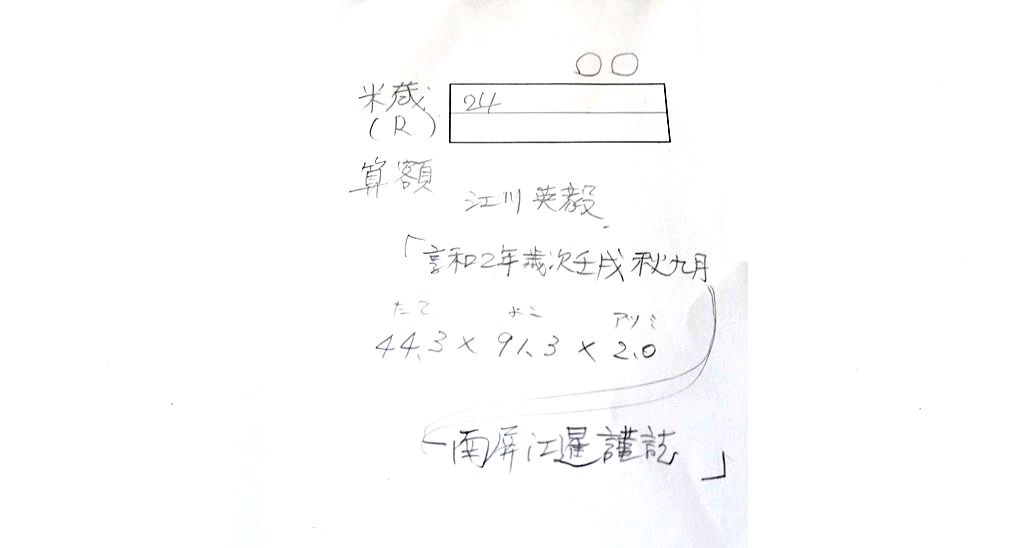 ○○
米蔵
24
(R)
算額
江川英毅
「享和2年歳次壬戌秋九月
たて よこ アツミ
44.3 × 91.3 × 2.0
南屏江暹謹誌」